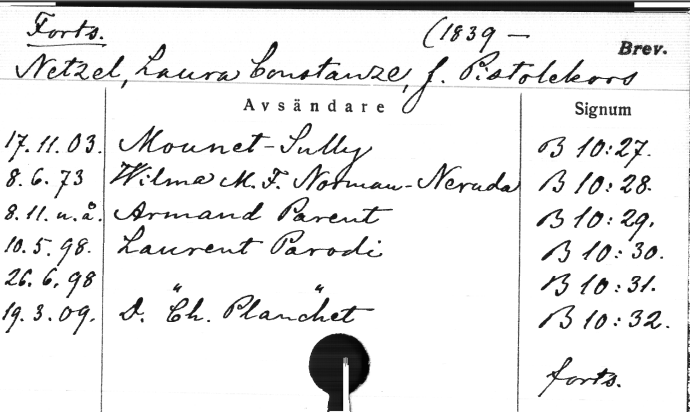 Forts. (1839 — Brev.
Netzel, Laura Constanze, f. Pistolekors
Avsändare Signum
17. 11. 03. Mounet-Sully B 10:27.
8. 6. 73 Wilma M. F. Norman-Neruda B 10:28.
8. 11. u. å. Armand Parent B 10:29.
10. 5. 98. Laurent Parodi B 10:30.
26. 6. 98 " " B 10:31.
19. 3. 09. D. Ch. Planchet B 10:32.
forts.